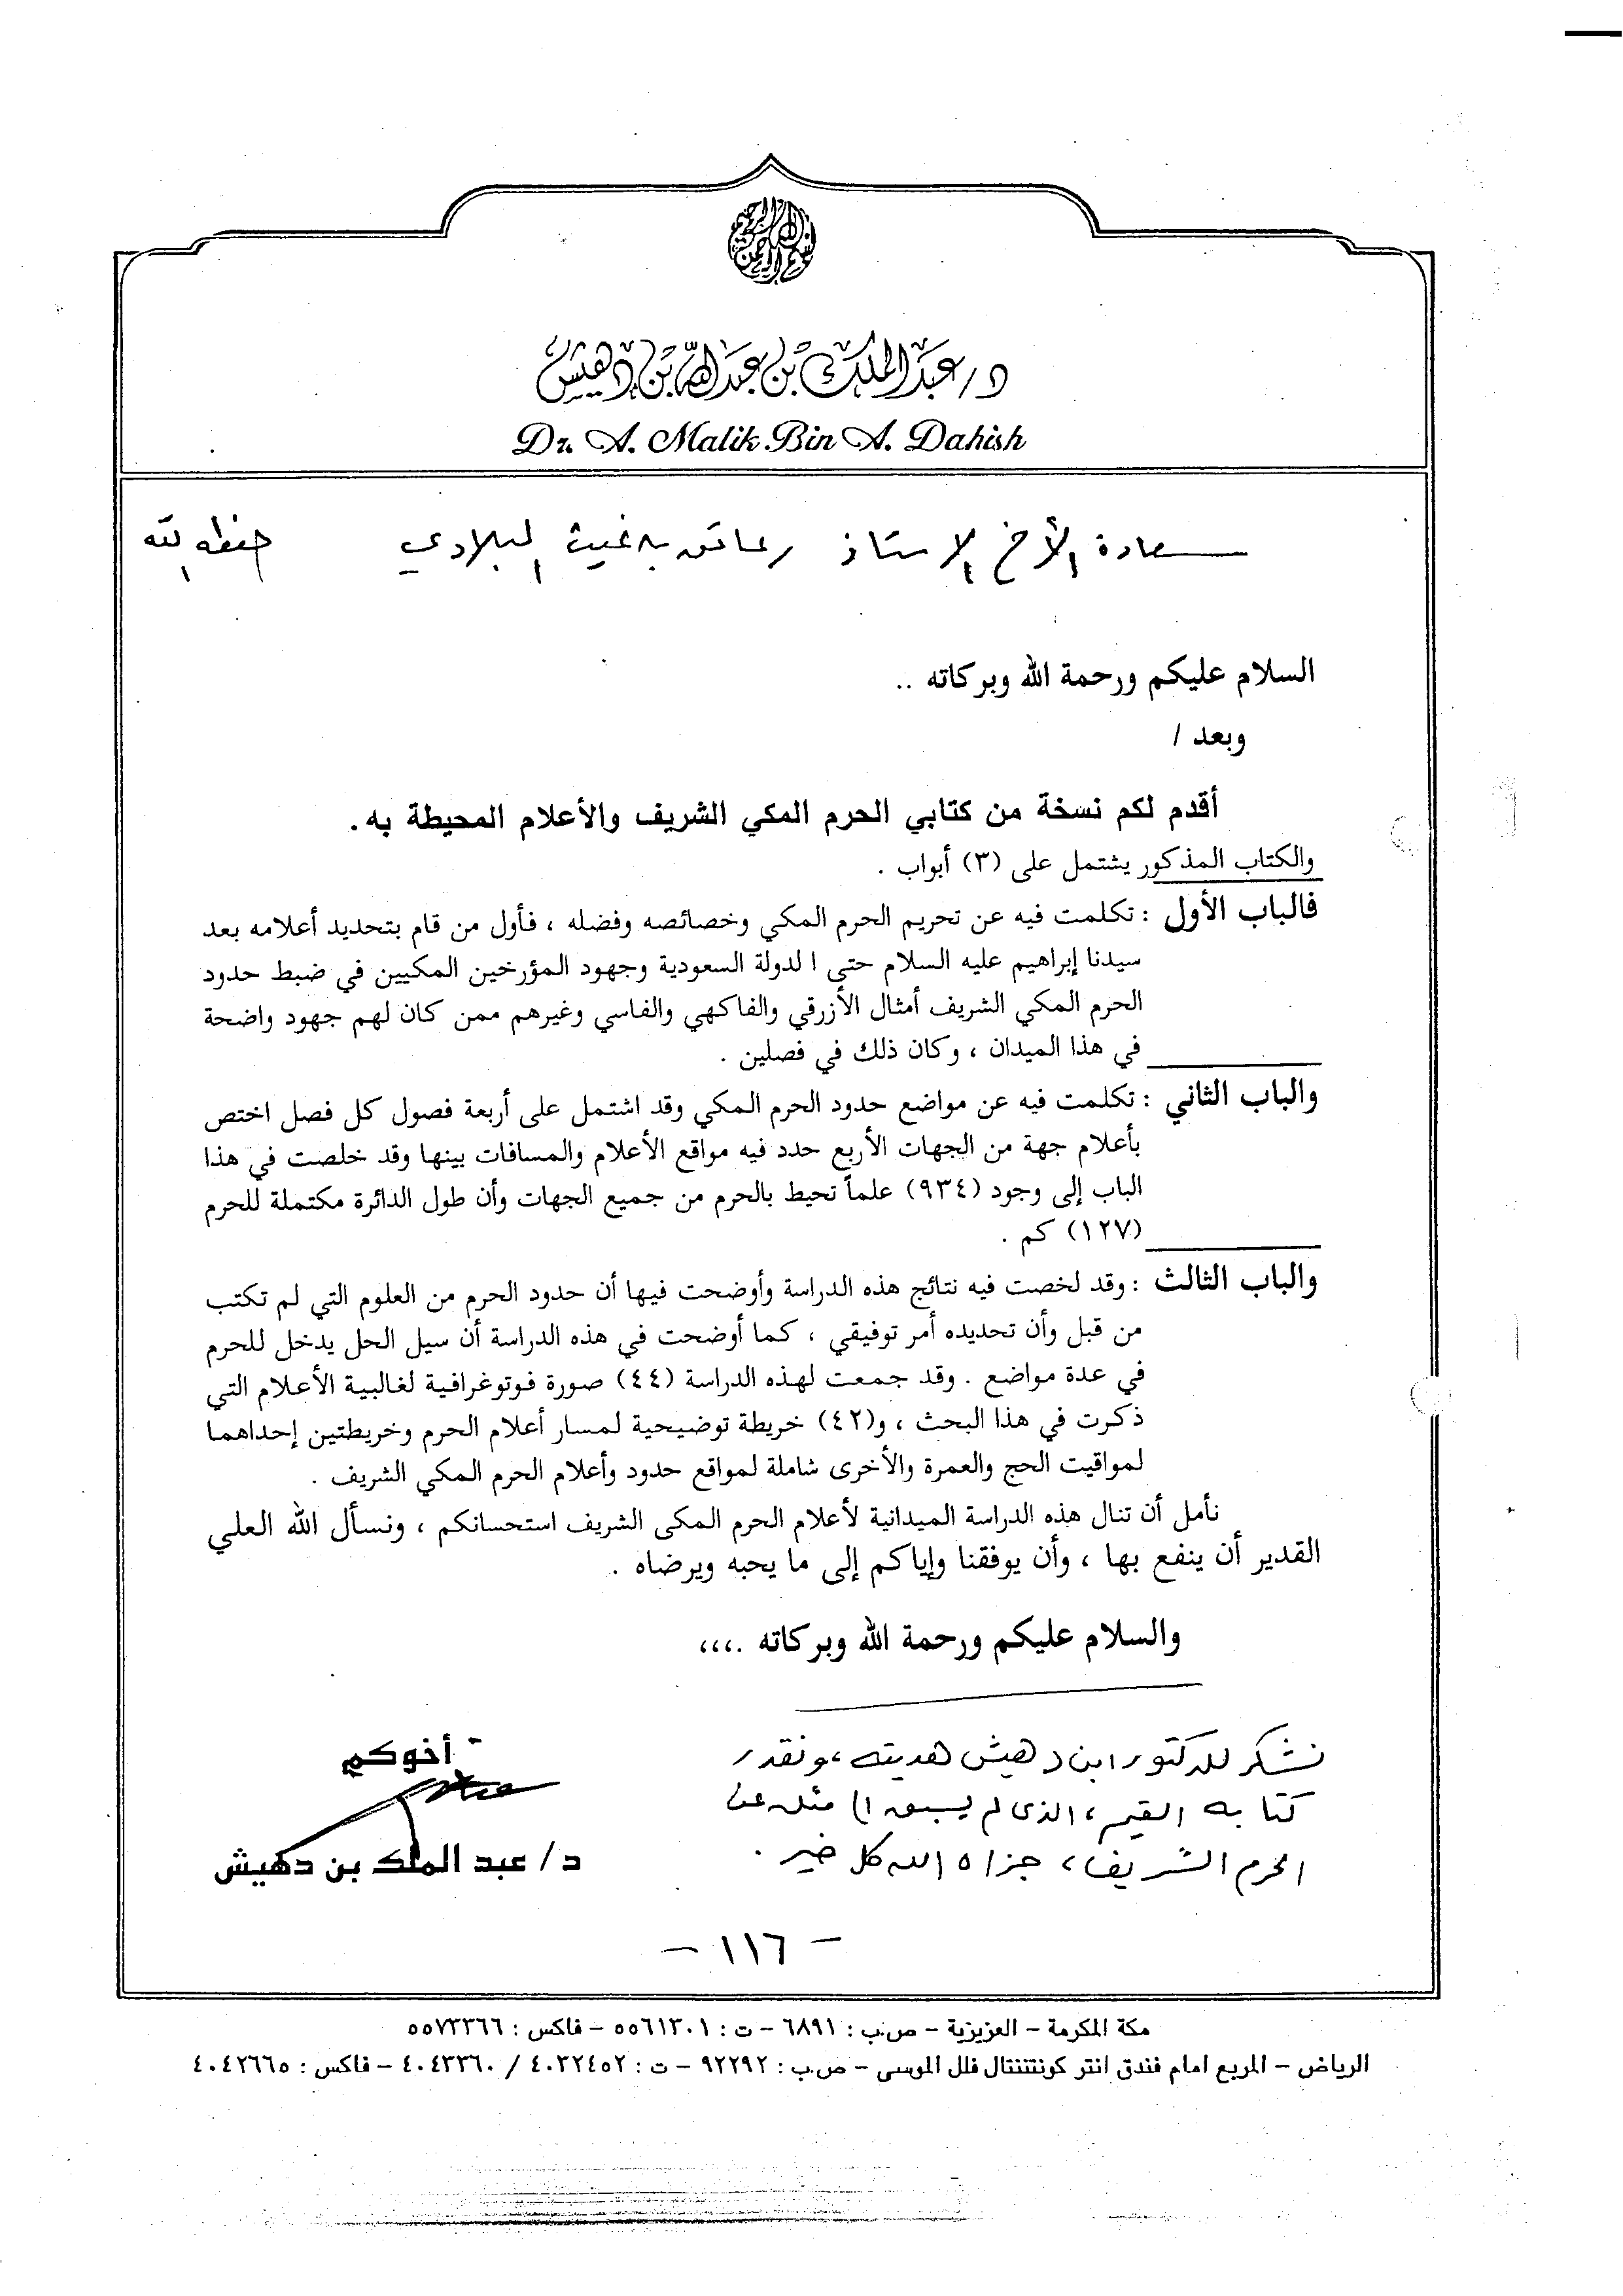 بسم الله الرحمن الرحيم
د/عبد الملك بن عبد الله بن دهيش
Dr. A. Malik Bin A. Dahish
سعادة الأخ الاستاذ / عاتق بن غيث البلادي حفظه الله
السلام عليكم ورحمة الله وبركاته ..
وبعد /
أقدم لكم نسخة من كتابي الحرم المكي الشريف والأعلام المحيطة به.
والكتاب المذكور يشتمل على (٣) أبواب .
فالباب الأول : تكلمت فيه عن تحريم الحرم المكي وخصائصه وفضله ، فأول من قام بتحديد أعلامه بعد
سيدنا إبراهيم عليه السلام حتى ا لدولة السعودية وجهود المؤرخين المكيين في ضبط حدود
الحرم المكي الشريف أمثال الأزرقي والفاكهي والفاسي وغيرهم ممن كان لهم جهود واضحة
في هذا الميدان ، وكان ذلك في فصلين .
والباب الثاني : تكلمت فيه عن مواضع حدود الحرم المكي وقد اشتمل على أربعة فصول كل فصل اختص
بأعلام جهة من الجهات الأربع حدد فيه مواقع الأعلام والمسافات بينها وقد خلصت في هذا
الباب إلى وجود (٩٣٤) علماً تحيط بالحرم من جميع الجهات وأن طول الدائرة مكتملة للحرم
(١٢٧) كم .
والباب الثالث : وقد لخصت فيه نتائج هذه الدراسة وأوضحت فيها أن حدود الحرم من العلوم التي لم تكتب
من قبل وأن تحديده أمر توفيقي ، كما أوضحت في هذه الدراسة أن سيل الحل يدخل للحرم
في عدة مواضع . وقد جمعت لهذه الدراسة (٤٤) صورة فوتوغرافية لغالبية الأعلام التي
ذكرت في هذا البحث ، و(٤٢) خريطة توضيحية لمسار أعلام الحرم وخريطتين إحداهما
لمواقيت الحج والعمرة والأخرى شاملة لمواقع حدود وأعلام الحرم المكي الشريف .
نأمل أن تنال هذه الدراسة الميدانية لأعلام الحرم المكى الشريف استحسانكم ، ونسأل الله العلي
القدير أن ينفع بها ، وأن يوفقنا وإياكم إلى ما يحبه ويرضاه .
والسلام عليكم ورحمة الله وبركاته .،،،
أخوكم
د/ عبد الملك بن دهيش
نشكر للدكتور ابن دهيش هديته ، ونقدر
كتابه القيم ، الذى لم يسبق الى مثله عن
الحرم الشريف ، جزاه الله كل خير .
– ١١٦ –
مكة المكرمة – العزيزية – ص.ب : ٦٨٩١ – ت : ٥٥٦١٣٠١ – فاكس : ٥٥٧٣٣٦٦
الرياض – المربع امام فندق انتر كونتننتال فلل الموسى – ص.ب : ٩٢٢٩٢ – ت : ٤٠٣٢٤٥٢ / ٤٠٤٣٣٦٠ – فاكس : ٤٠٤٢٦٦٥